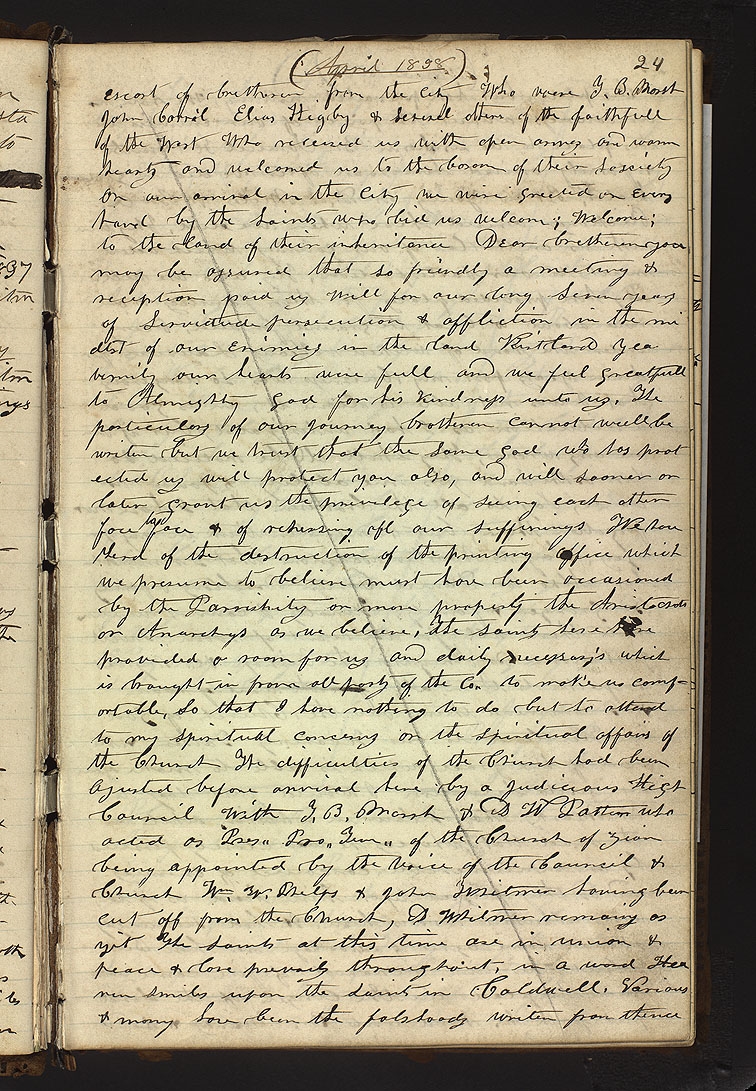 (April 1838)
24
escort of bretheren from the City Who were T. B. Marsh
John Corril Elias Higby & several others of the faithfull
of the West Who received us with open armes and warm
hearts and welcomed us to the bosom of their sosciety
On our arrival in the City we wire greeted on Every
hand by the Saints who bid us welcom; Welcome;
to the Land of their inheritance Dear bretheren you
may be assured that so friendly a meeting &
reception paid us Will for our long Seven years
of Servictude persecution & affliction in the mi
dst of our Enimies in the Land Kirtland yea
verrily our hearts were full and we feel greatfull
to Almighty God for his kindness unto us. The
particulars of our Journey brotheren cannot well be
writen but we trust that the same God who has prot
ected us will protect you also, and will sooner or
later grant us the privilege of seeing each other
face too face & of rehersing all our sufferings We have
herd of the destruction of the printing office which
we presume to believe must have been occasioned
by the Parrishites or more properly the Aristocrats
or Anarchys as we believe, The Saints here have
provided a room for us and daily necessary's which
is brought in from all parts of the Co. to make us comf=
ortable, So that I have nothing to do but to attend
to my spiritual concerns or the spiritual affairs of
the Church The difficulties of the Church had been
ajusted before arrival here by a Judicious High
Council With T. B. Marsh & D W Patten who
acted as Pres,, Pro,, Tem,, of the Church of Zion
being appointed by the voice of the Council &
Church Wm W. Phelps & John Whitmer having been
cut off from the Church, D Whitmer remains as
yet The Saints at this time are in union &
peace & love prevails throughout, in a word Hea
ven smiles upon the Saints in Caldwell. Various
& many have been the falshoods writen from thence